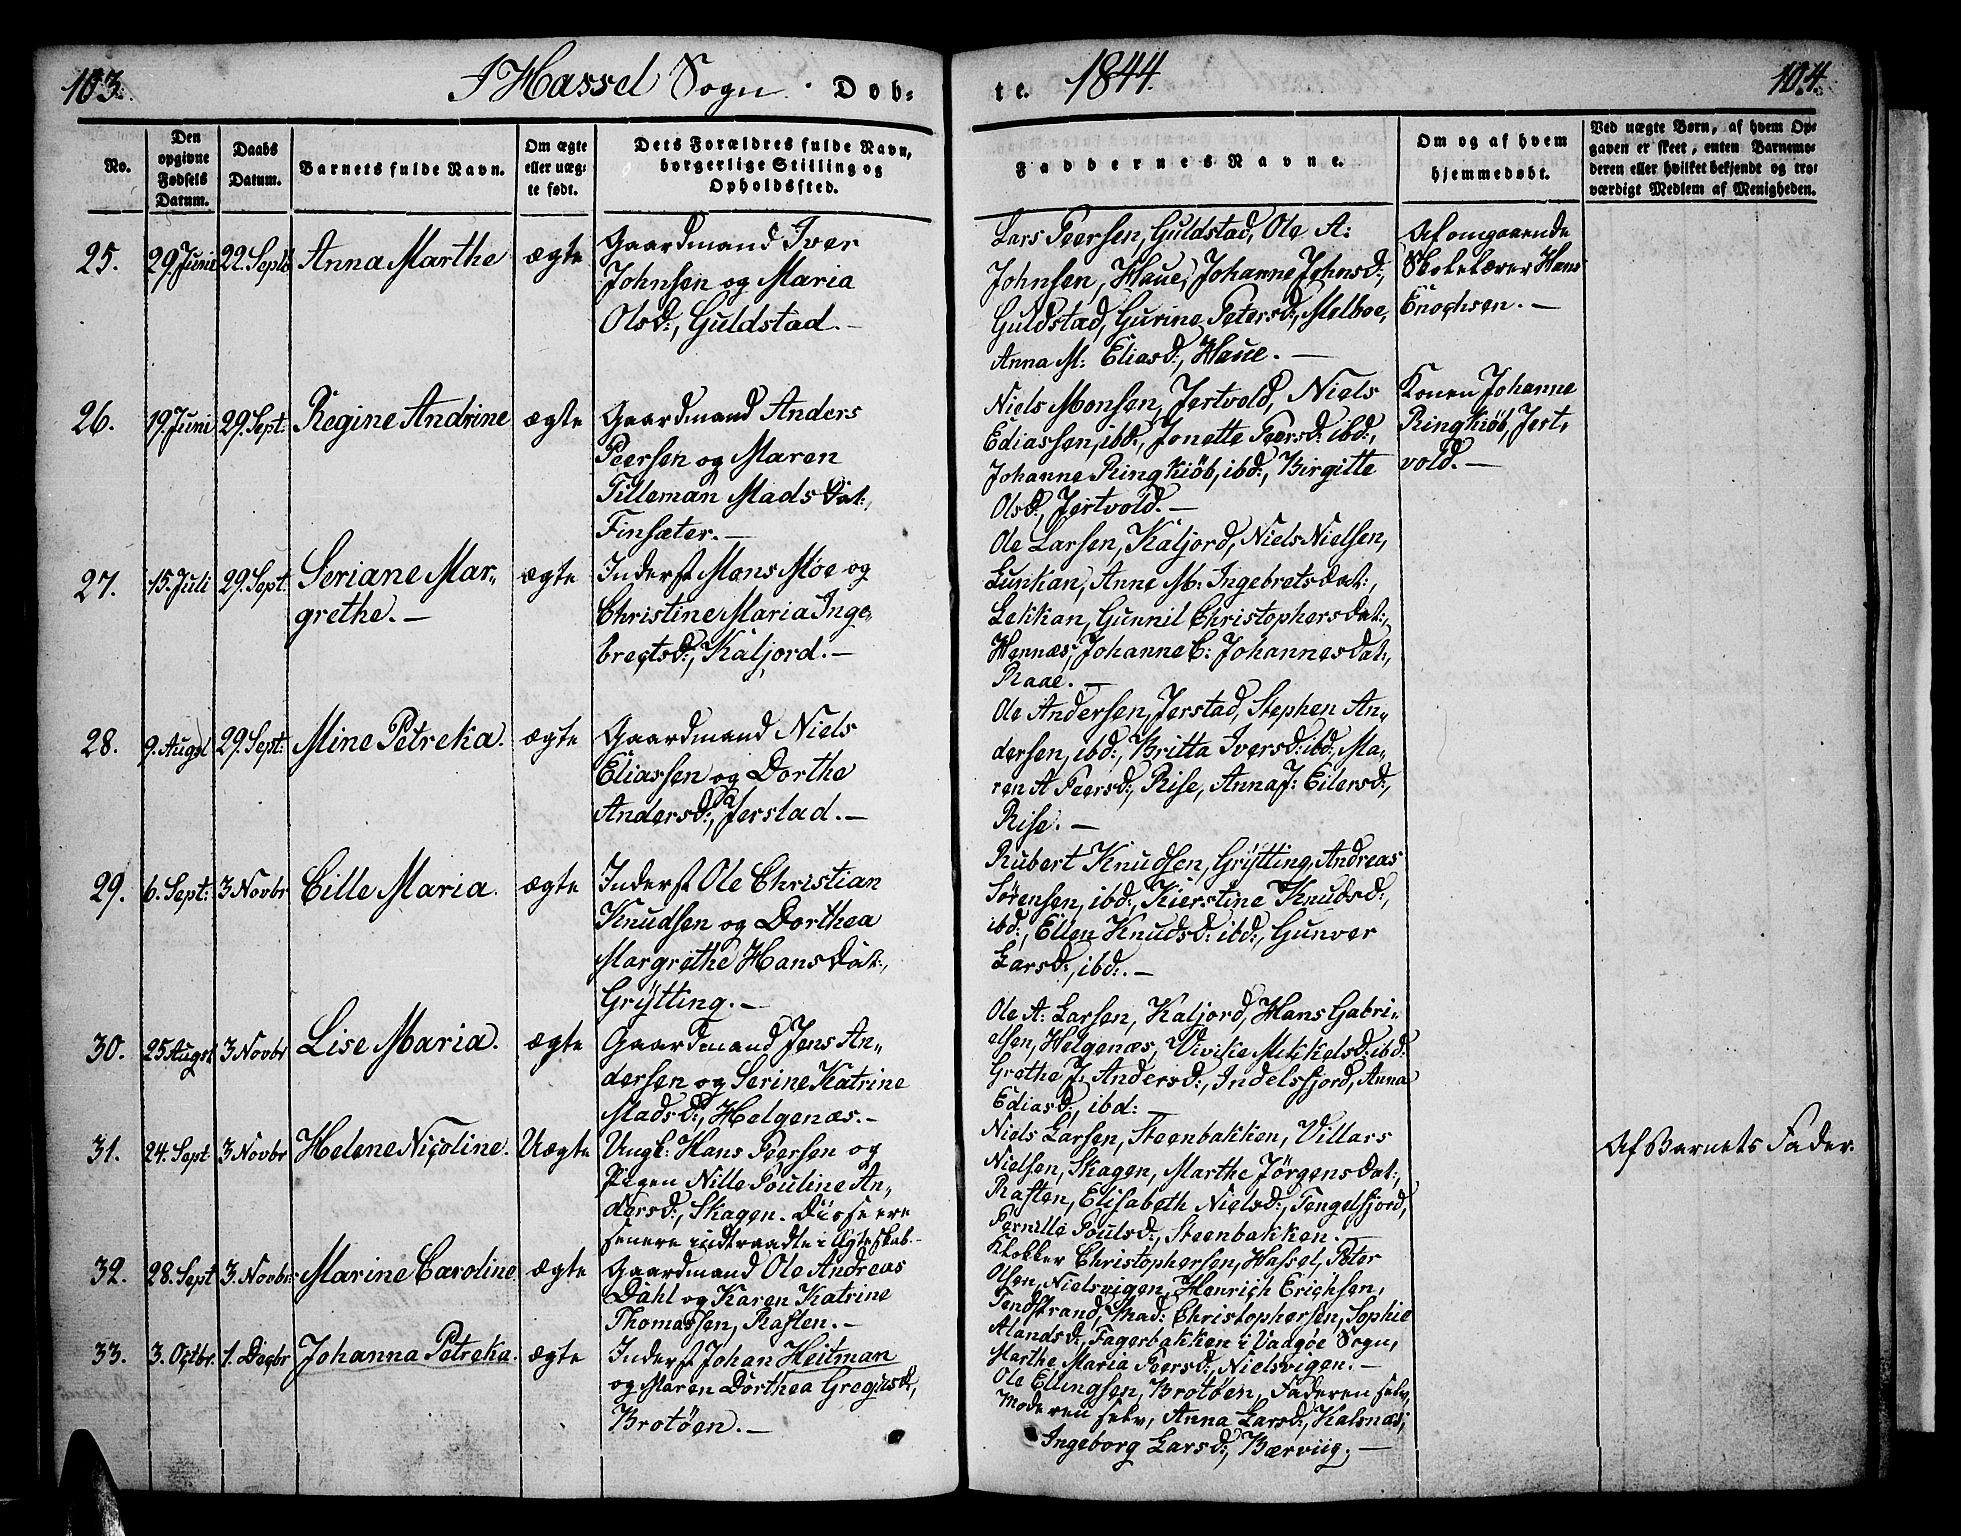 103.
I Hassel Sogn. Døb-
te. 1844.
104.
No.
Den
opgivne
Fødsels
Datum.
Daabs
Datum.
Barnets fulde Navn.
Om ægte
eller uæg-
te født.
Dets Forældres fulde Navn,
borgerlige Stilling og
Opholdssted.
Faddernes Navne.
Om og af hvem
hjemmedøbt.
Ved uægte Børn, af hvem Op-
gaven er skeet, enten Barnemo-
deren eller hvilket bekjendt og tro-
værdigt Medlem af Menigheden.
25.
29. Juni
22. Septb
Anna Marthe
ægte
Gaardmand Iver
Johnsen og Maria
Olsd:, Guldstad.-
Lars Peersen, Guldstad, Ole A:
Johnsen, Haue, Johanne Johnsd:,
Guldstad, Gurine Petersd:, Melboe,
Anna M: Eliasd:, Haue. -
Af omgaaende
Skolelærer Hans
Enochsen. -
26.
19. Juni
29. Sept:
Regine Andrine
ægte
Gaardmand Anders
Peersen og Maren
Tilleman Mads Dat:,
Finsæter.-
Niels Monsen, Jertvold, Niels
Ediassen, ibd:, Jonette Peersd: ibd:,
Johanne Ringkiöb, ibd:, Birgitte
Olsd:, Jertvold. -
Konen Johanne
Ringkiöb, Jert,
vold. -
27.
15. Juli
29. Sept:
Seriane Mar,,
grethe. -
ægte
Inderst Mons Moe og
Christine Maria Inge-
brectsd:, Kaljord. -
Ole Larsen, Kaljord, Niels Nielsen,
Lunkan, Anne M: Ingebrets Dat:,
Lekkan, Gunnil Christophers Dat:,
Hennæs, Johanne C: Johannes Dat:,
Raae. -
28.
9. Augst
29. Sept:
Mine Petreka.
ægte
Gaardmand Niels
Eliassen og Dorthe
Andersd:, Jerstad. -
Ole Andersen, Jerstad, Stephen An,,
dersen, ibd:, Britta Iversd: ibd:, Ma,,
ren A Peersd:, Rise, Anna J: Eilersd:,
Rise. -
29.
6. Sept:
3 Novbr
Cille Maria.
ægte
Inderst Ole Christian
Knudsen og Dorthea
Margrethe Hans Dat:,
Grÿtting. -
Rubert Knudsen, Grÿtting, Andreas
Sørensen, ibd:, Kierstine Knudsd:,
ibd:, Ellen Knudsd: ibd:, Gunver
Larsd:, ibd:. -
30.
25 Augst
3 Novbr
Lise Maria.
ægte
Gaardmand Jens An,,
dersen og Serine Katrine
Madsd:, Helgenæs. -
Ole A: Larsen, Kaljord, Hans Gabri-
elsen, Helgenæs, Vivike Mikkelsd: ibd:
Grethe J. Andersd:, Indelsfjord, Anna
Ediasd:, ibd: -
31.
24. Sept
3 Novbr
Helene Nicoline.
Uægte
Ungk: Hans Peersen og
Pigen Nille Pouline An,,
dersd:, Skagen. Disse ere
senere indtraadte i Ægteskab. -
Niels Larsen, Steenbakken, Villars
Nielsen, Skagen, Marthe Jörgens Dat:,
Raften, Elisabeth Nielsd:, Tengelfjord,
Pernille Poulsd:, Steenbakken. -
Af Barnets Fader.
32.
28. Sept
3. Novbr
Marine Caroline
ægte
Gaardmand Ole Andreas
Dahl og Karen Katrine
Thomassen, Raften. -
Klokker Christophersen, Hassel, Peter
Olsen, Nielsvigen, Henrich Erichsen,
Tendstrand, Mad: Christophersen, Sophie
Alandsd:, Fagerbakken i Vaagöe Sogn,
Marthe Maria Peersd:, Nielsvigen. -
33.
3. Octbr
1. Decbr
Johanna Petreka.
ægte
Inderst Johan Heitman
og Maren Dorthea Gregusd:,
Brotöen. -
Ole Ellingsen, Brotöen, Faderen selv,
Moderen selv, Anna Larsd:, Kalsnæs,
Ingeborg Larsd:, Bærviig. -